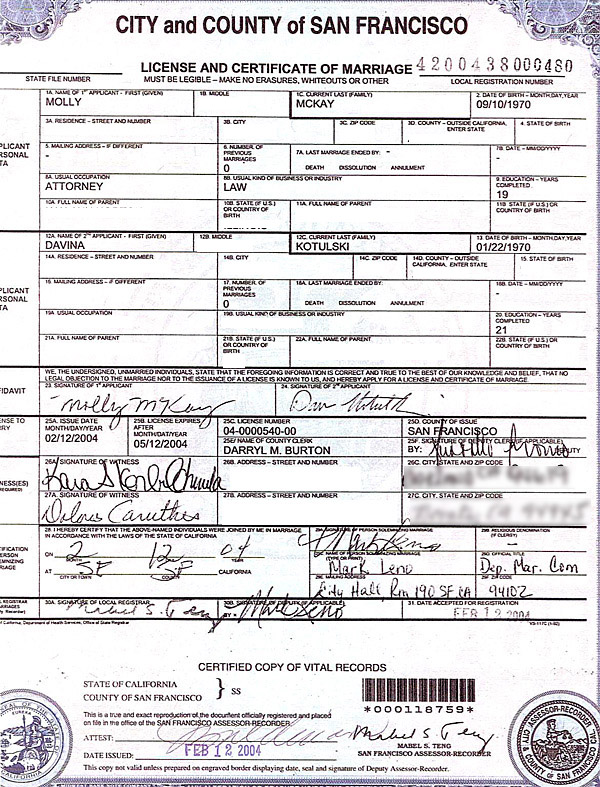 CITY and COUNTY of SAN FRANCISCO
LICENSE AND CERTIFICATE OF MARRIAGE 4200438000480
STATE FILE NUMBER MUST BE LEGIBLE – MAKE NO ERASURES, WHITEOUTS OR OTHER LOCAL REGISTRATION NUMBER
1A. NAME OF 1ST APPLICANT - FIRST (GIVEN) 1B. MIDDLE 1C. CURRENT LAST (FAMILY) 2. DATE OF BIRTH – MONTH,DAY,YEAR
MOLLY MCKAY 09/10/1970
3A. RESIDENCE – STREET AND NUMBER 3B. CITY 3C. ZIP CODE 3D. COUNTY - OUTSIDE CALIFORNIA, ENTER STATE 4. STATE OF BIRTH
5. MAILING ADDRESS – IF DIFFERENT 6. NUMBER OF PREVIOUS MARRIAGES 7A. LAST MARRIAGE ENDED BY: - 7B. DATE – MM/DD/YYYY
- 0 DEATH DISSOLUTION ANNULMENT -
8A. USUAL OCCUPATION 8B. USUAL KIND OF BUSINESS OR INDUSTRY 9. EDUCATION – YEARS COMPLETED
ATTORNEY LAW 19
10A. FULL NAME OF PARENT 10B. STATE (IF U.S.) OR COUNTRY OF BIRTH 11A. FULL NAME OF PARENT 11B. STATE (IF U.S.) OR COUNTRY OF BIRTH
12A. NAME OF 2ND APPLICANT - FIRST (GIVEN) 12B. MIDDLE 12C. CURRENT LAST (FAMILY) 13. DATE OF BIRTH – MONTH,DAY,YEAR
DAVINA KOTULSKI 01/22/1970
14A. RESIDENCE – STREET AND NUMBER 14B. CITY 14C. ZIP CODE 14D. COUNTY - OUTSIDE CALIFORNIA, ENTER STATE 15. STATE OF BIRTH
16. MAILING ADDRESS – IF DIFFERENT 17. NUMBER OF PREVIOUS MARRIAGES 18A. LAST MARRIAGE ENDED BY: 18B. DATE – MM/DD/YYYY
- 0 DEATH DISSOLUTION ANNULMENT -
19A. USUAL OCCUPATION 19B. USUAL KIND OF BUSINESS OR INDUSTRY 20. EDUCATION – YEARS COMPLETED
21
21A. FULL NAME OF PARENT 21B. STATE (IF U.S.) OR COUNTRY OF BIRTH 22A. FULL NAME OF PARENT 22B. STATE (IF U.S.) OR COUNTRY OF BIRTH
WE, THE UNDERSIGNED, UNMARRIED INDIVIDUALS, STATE THAT THE FOREGOING INFORMATION IS CORRECT AND TRUE TO THE BEST OF OUR KNOWLEDGE AND BELIEF, THAT NO
LEGAL OBJECTION TO THE MARRIAGE NOR TO THE ISSUANCE OF A LICENSE IS KNOWN TO US, AND HEREBY APPLY FOR A LICENSE AND CERTIFICATE OF MARRIAGE.
23. SIGNATURE OF 1ST APPLICANT 24. SIGNATURE OF 2ND APPLICANT
Molly McKay
25A. ISSUE DATE MONTH/DAY/YEAR 25B. LICENSE EXPIRES AFTER MONTH/DAY/YEAR 25C. LICENSE NUMBER 25D. COUNTY OF ISSUE
02/12/2004 05/12/2004 04-0000540-00 SAN FRANCISCO
25E/ NAME OF COUNTY CLERK 25F. SIGNATURE OF DEPUTY CLERK (IF APPLICABLE)
DARRYL M. BURTON BY:
26A. SIGNATURE OF WITNESS 26B. ADDRESS – STREET AND NUMBER 26C. CITY, STATE AND ZIP CODE
27A. SIGNATURE OF WITNESS 27B. ADDRESS – STREET AND NUMBER 27C. CITY, STATE AND ZIP CODE
Dolores Caruthers
28. I HEREBY CERTIFY THAT THE ABOVE-NAMED INDIVIDUALS WERE JOINED BY ME IN MARRIAGE IN ACCORDANCE WITH THE LAWS OF THE STATE OF CALIFORNIA
ON 2 12 04
AT SF SF CALIFORNIA
CITY OR TOWN COUNTY
29A. SIGNATURE OF PERSON SOLEMNIZING MARRIAGE 29B. RELIGIOUS DENOMINATION (IF CLERGY)
Mark Leno
29C. NAME OF PERSON SOLEMNIZING MARRIAGE 29D. OFFICIAL TITLE
Mark Leno Dep. Mar. Com
29E. MAILING ADDRESS 29F. ZIP CODE
City Hall Rm 190 SF CA 94102
30A. SIGNATURE OF LOCAL REGISTRAR 30B. SIGNATURE OF DEPUTY (IF APPLICABLE) 31. DATE ACCEPTED FOR REGISTRATION
Mabel S. Teng BY: FEB 12 2004
CERTIFIED COPY OF VITAL RECORDS
STATE OF CALIFORNIA
COUNTY OF SAN FRANCISCO } SS
*000118759*
This is a true and exact reproduction of the document officially registered and placed
on file in the office of the SAN FRANCISCO ASSESSOR-RECORDER.
ATTEST:
Mabel S. Teng
DATE ISSUED: FEB 12 2004
MABEL S. TENG
SAN FRANCISCO ASSESSOR-RECORDER
This copy not valid unless prepared on engraved border displaying date, seal and signature of Deputy Assessor-Recorder.